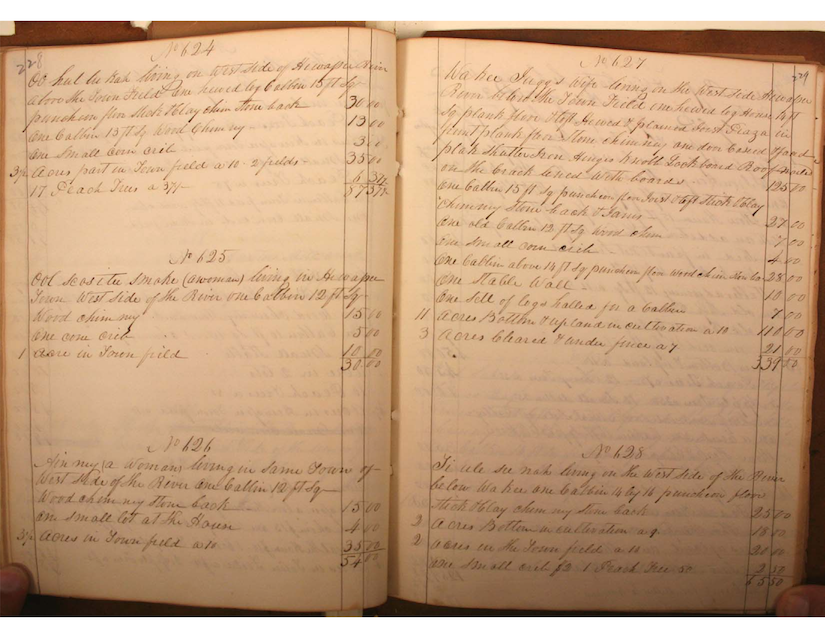 228
No 624
living on West Side of Hiwassee River
above the Town Field One hewed log Cabbin 15 ft Sq
puncheon floor Stick & Clay chim Stone back 30 00
one Cabbin 13 ft Sq Wood Chimny 13 00
one Small Corn crib 3 00
3½ Acres part in Town field a 10 - 2 fields - 35 00
17 Peach Trees a 37½ 6 37½
87 37½
No 625
Smoke (a woman) living in Hiwassee
Town West side of the River one Cabbin 12 ft Sq
Wood chimny 15 00
one corn crib 5 00
1 Acre in Town field 10 00
30 00
No 626
(a Woman) living in Same Town of
West Side of the River one Cabbin 12 ft Sq
Wood chimny Stone back 15 00
one small lot at the House 4 00
3½ Acres in Town field a 10 35 00
54 00
229
No 627
Wa kee wife living on the West Side Hiwassee
River below the Town Field one hewed log House ft
Sq plank floor & loft Hewed & plained Joist Piaza in
front plank floor Stone chimney one door Cased &
plank Shutter Iron Hinges Knob Lock board Roof
on the Crack lined With boards 125 00
one Cabbin 15 ft Sq puncheon floor Joist & loft Stick & Clay
Chimny Stone back & Jams 27 00
one old Cabbin 12 ft Sq Wood chim 7 00
one Small corn crib 4 00
One Cabbin above 14 ft Sq puncheon floor wood chim 28 00
One Stable Wall - 10 00
One Sett of logs halled for a Cabbin 7 00
11 Acres Bottom & upland in cultivation a 10 110 00
3 Acres Cleared & under fence a 7 21 00
339 00
No 628
living on the West Side of the River
below Wa kee one Cabbin 14 by 16 puncheon floor
Stick & Clay chimny Stone back 25 00
2 Acres Bottom in cultivation a 9 18 00
2 Acres in the Town field a 10 20 00
one Small crib $2 1 Peach Tree 50 2 50
65 50